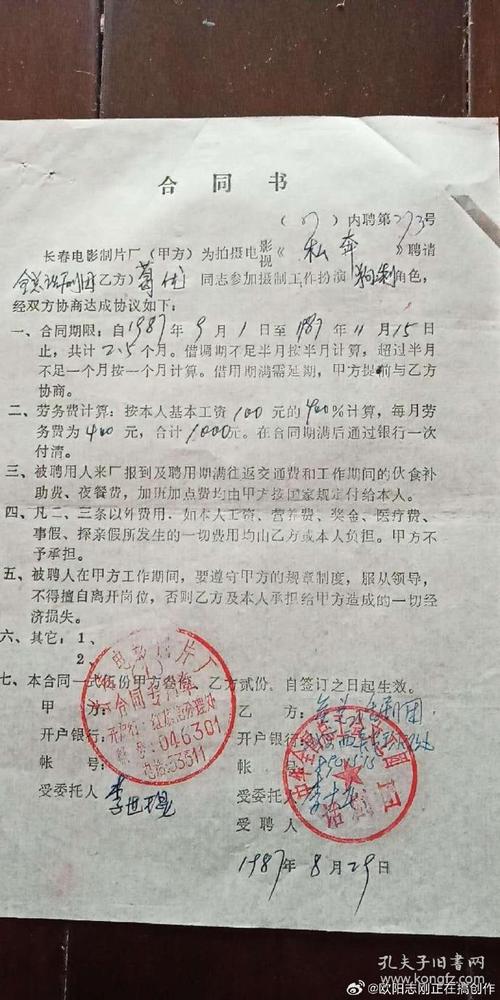 合同书
（87）内聘第273号
长春电影制片厂（甲方）为拍摄电影视《私奔》聘请
全总话剧团（乙方）葛优同志参加摄制工作扮演 角色，
经双方协商达成协议如下：
一、合同期限：自1987年9月1日至1987年11月15日
止，共计2.5个月。借调期不足半月按半月计算，超过半月
不足一个月按一个月计算。借用期满需延期，甲方提前与乙方
协商。
二、劳务费计算：按本人基本工资100元的400%计算，每月劳
务费为400元，合计1000元。在合同期满后通过银行一次
付清。
三、被聘用人来厂报到及聘用期满往返交通费和工作期间的伙食补
助费、夜餐费，加班加点费均由甲方按国家规定付给本人。
四、凡二、三条以外费用，如本人工资、营养费、奖金、医疗费、
事假、探亲假所发生的一切费用均由乙方或本人负担。甲方不
予承担。
五、被聘人在甲方工作期间，要遵守甲方的规章制度，服从领导，
不得擅自离开岗位，否则乙方及本人承担给甲方造成的一切经
济损失。
六、其它：1、
2、
七、本合同一式 份甲方 份，乙方贰份，自签订之日起生效。
甲方：
乙方：全总话剧团
开户银行：
开户银行：
帐号：
帐号：
受委托人 李世
受委托人 李
受聘人
1987年8月29日
电影制片厂
合同专用章
046301
电话53311
中华全国总工会
话剧团
孔夫子旧书网
kongfz.com
@欧阳志刚正在搞创作